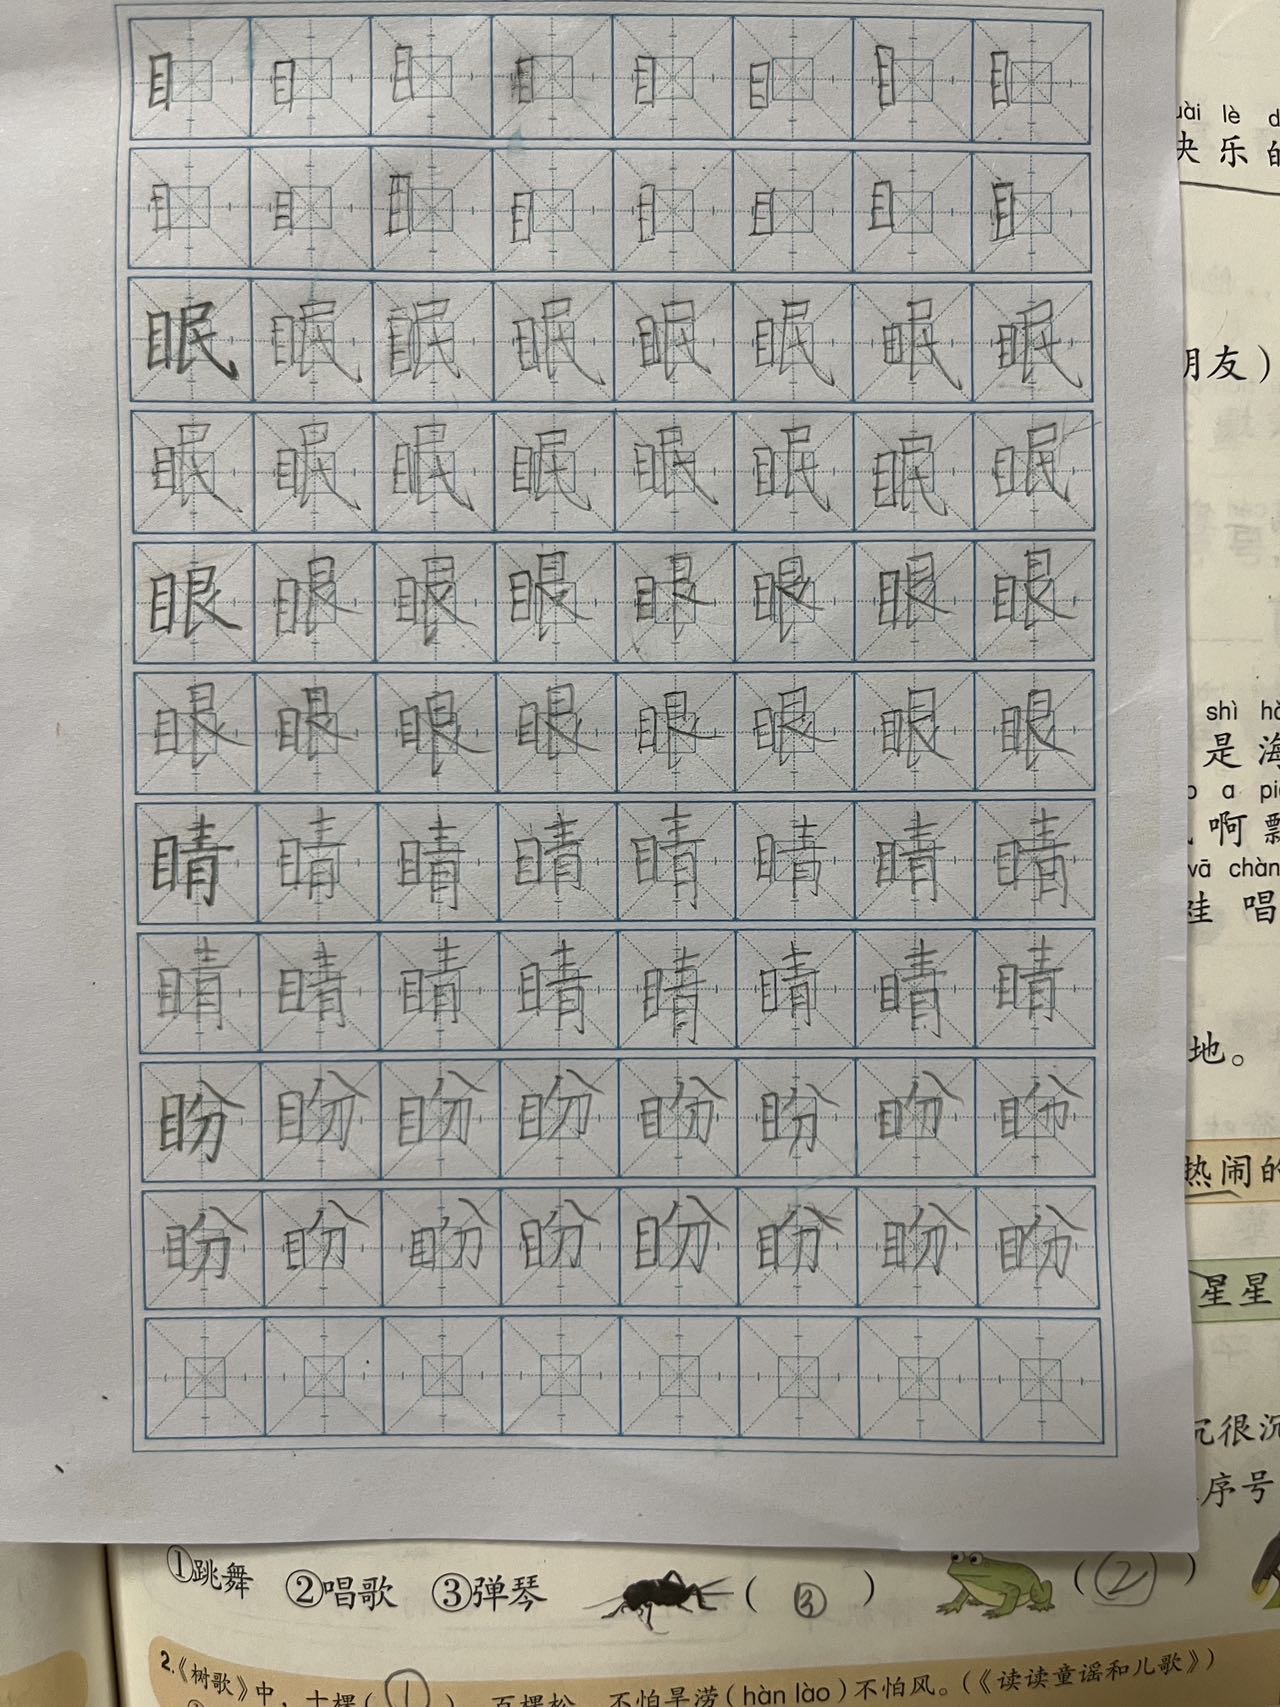 目 目 目 目 目 目 目 目
目 目 目 目 目 目 目 目
眠 眠 眠 眠 眠 眠 眠 眠
眠 眠 眠 眠 眠 眠 眠 眠
眼 眼 眼 眼 眼 眼 眼 眼
眼 眼 眼 眼 眼 眼 眼 眼
睛 睛 睛 睛 睛 睛 睛 睛
睛 睛 睛 睛 睛 睛 睛 睛
盼 盼 盼 盼 盼 盼 盼 盼
盼 盼 盼 盼 盼 盼 盼 盼
lè
快 乐 的
朋友）
shì
是 海
a
啊 飘
chàn
蛙 唱
地。
热闹的
星星
沉很沉
序号
①跳舞 ②唱歌 ③弹琴 （ ③ ） （ ② ）
2.《树歌》中，十棵（ 1 ），百棵松，不怕旱涝（hàn lào）不怕风。（《读读童谣和儿歌》）